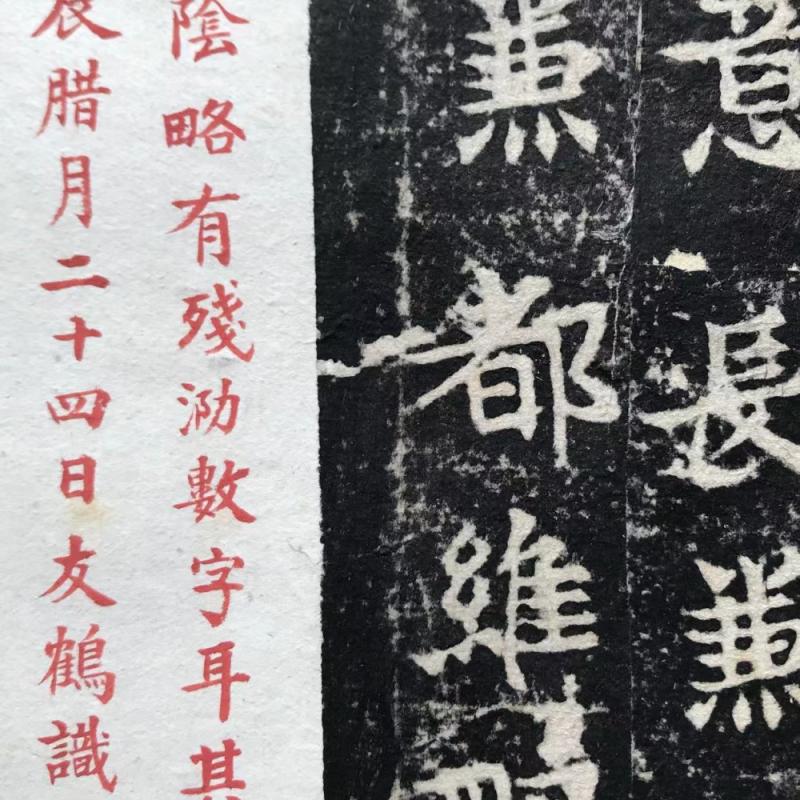 意長兼
兼都維
陰略有殘泐數字耳其
腊月二十四日友鶴識